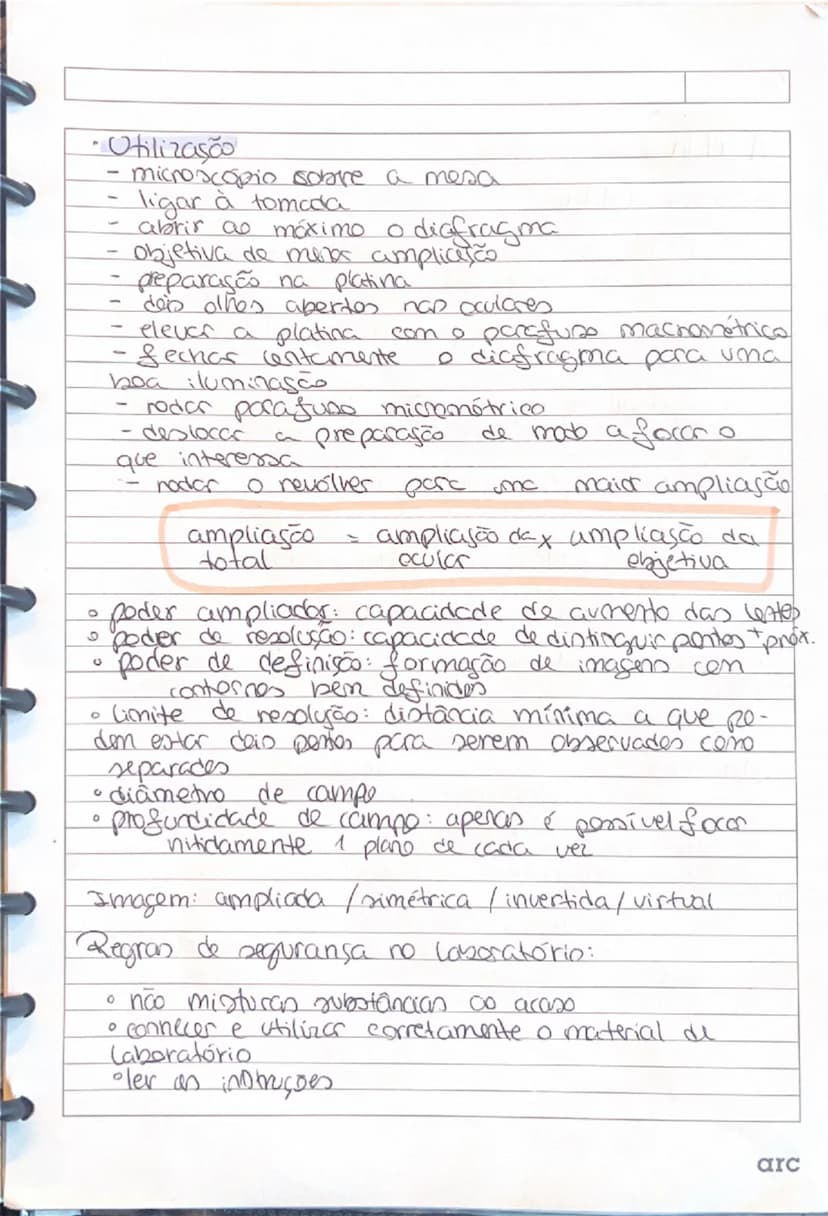 · Utilização
- microscópio sobre a mesa
- ligar à tomada
- abrir ao máximo o diafragma
- objetiva de menor ampliação
- preparação na platina
- dois olhos abertos nas oculares
- elevar a platina com o parafuso macrométrico
- fechar lentamente o diafragma para uma
boa iluminação
- rodar parafuso micrométrico
- deslocar a preparação de modo a focar o
que interessa
- rodar o revólver para uma maior ampliação
ampliação = ampliação da x ampliação da
total ocular objetiva
◦ poder ampliador: capacidade de aumento das lentes
◦ poder de resolução: capacidade de distinguir pontos + próx.
◦ poder de definição: formação de imagens com
contornos bem definidos
◦ limite de resolução: distância mínima a que po-
dem estar dois pontos para serem observados como
separados
◦ diâmetro de campo
◦ profundidade de campo: apenas é possível focar
nitidamente 1 plano de cada vez
Imagem: ampliada / simétrica / invertida / virtual
Regras de segurança no laboratório:
◦ não misturas substâncias ao acaso
◦ conhecer e utilizar corretamente o material de
laboratório
◦ ler as instruções
arc